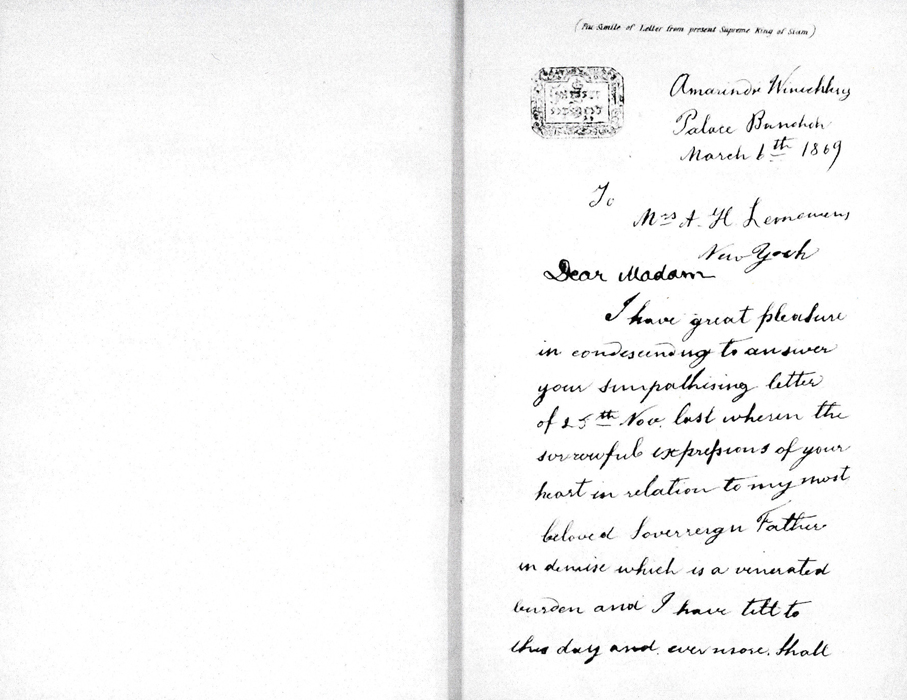 (Fac-Simile of Letter from present Supreme King of Siam)
Amarindr Winichley
Palace
March 6th 1869
To
Mrs A. H. Leonowens
New York
Dear Madam
I have great pleasure
in condescending to answer
your simpathising letter
of 25th Nov. last wherein the
sorrowful expressions of your
heart in relation to my most
beloved Soverreign Father
in demise which is a venerated
burden and I have till to
this day and evermore. Shall